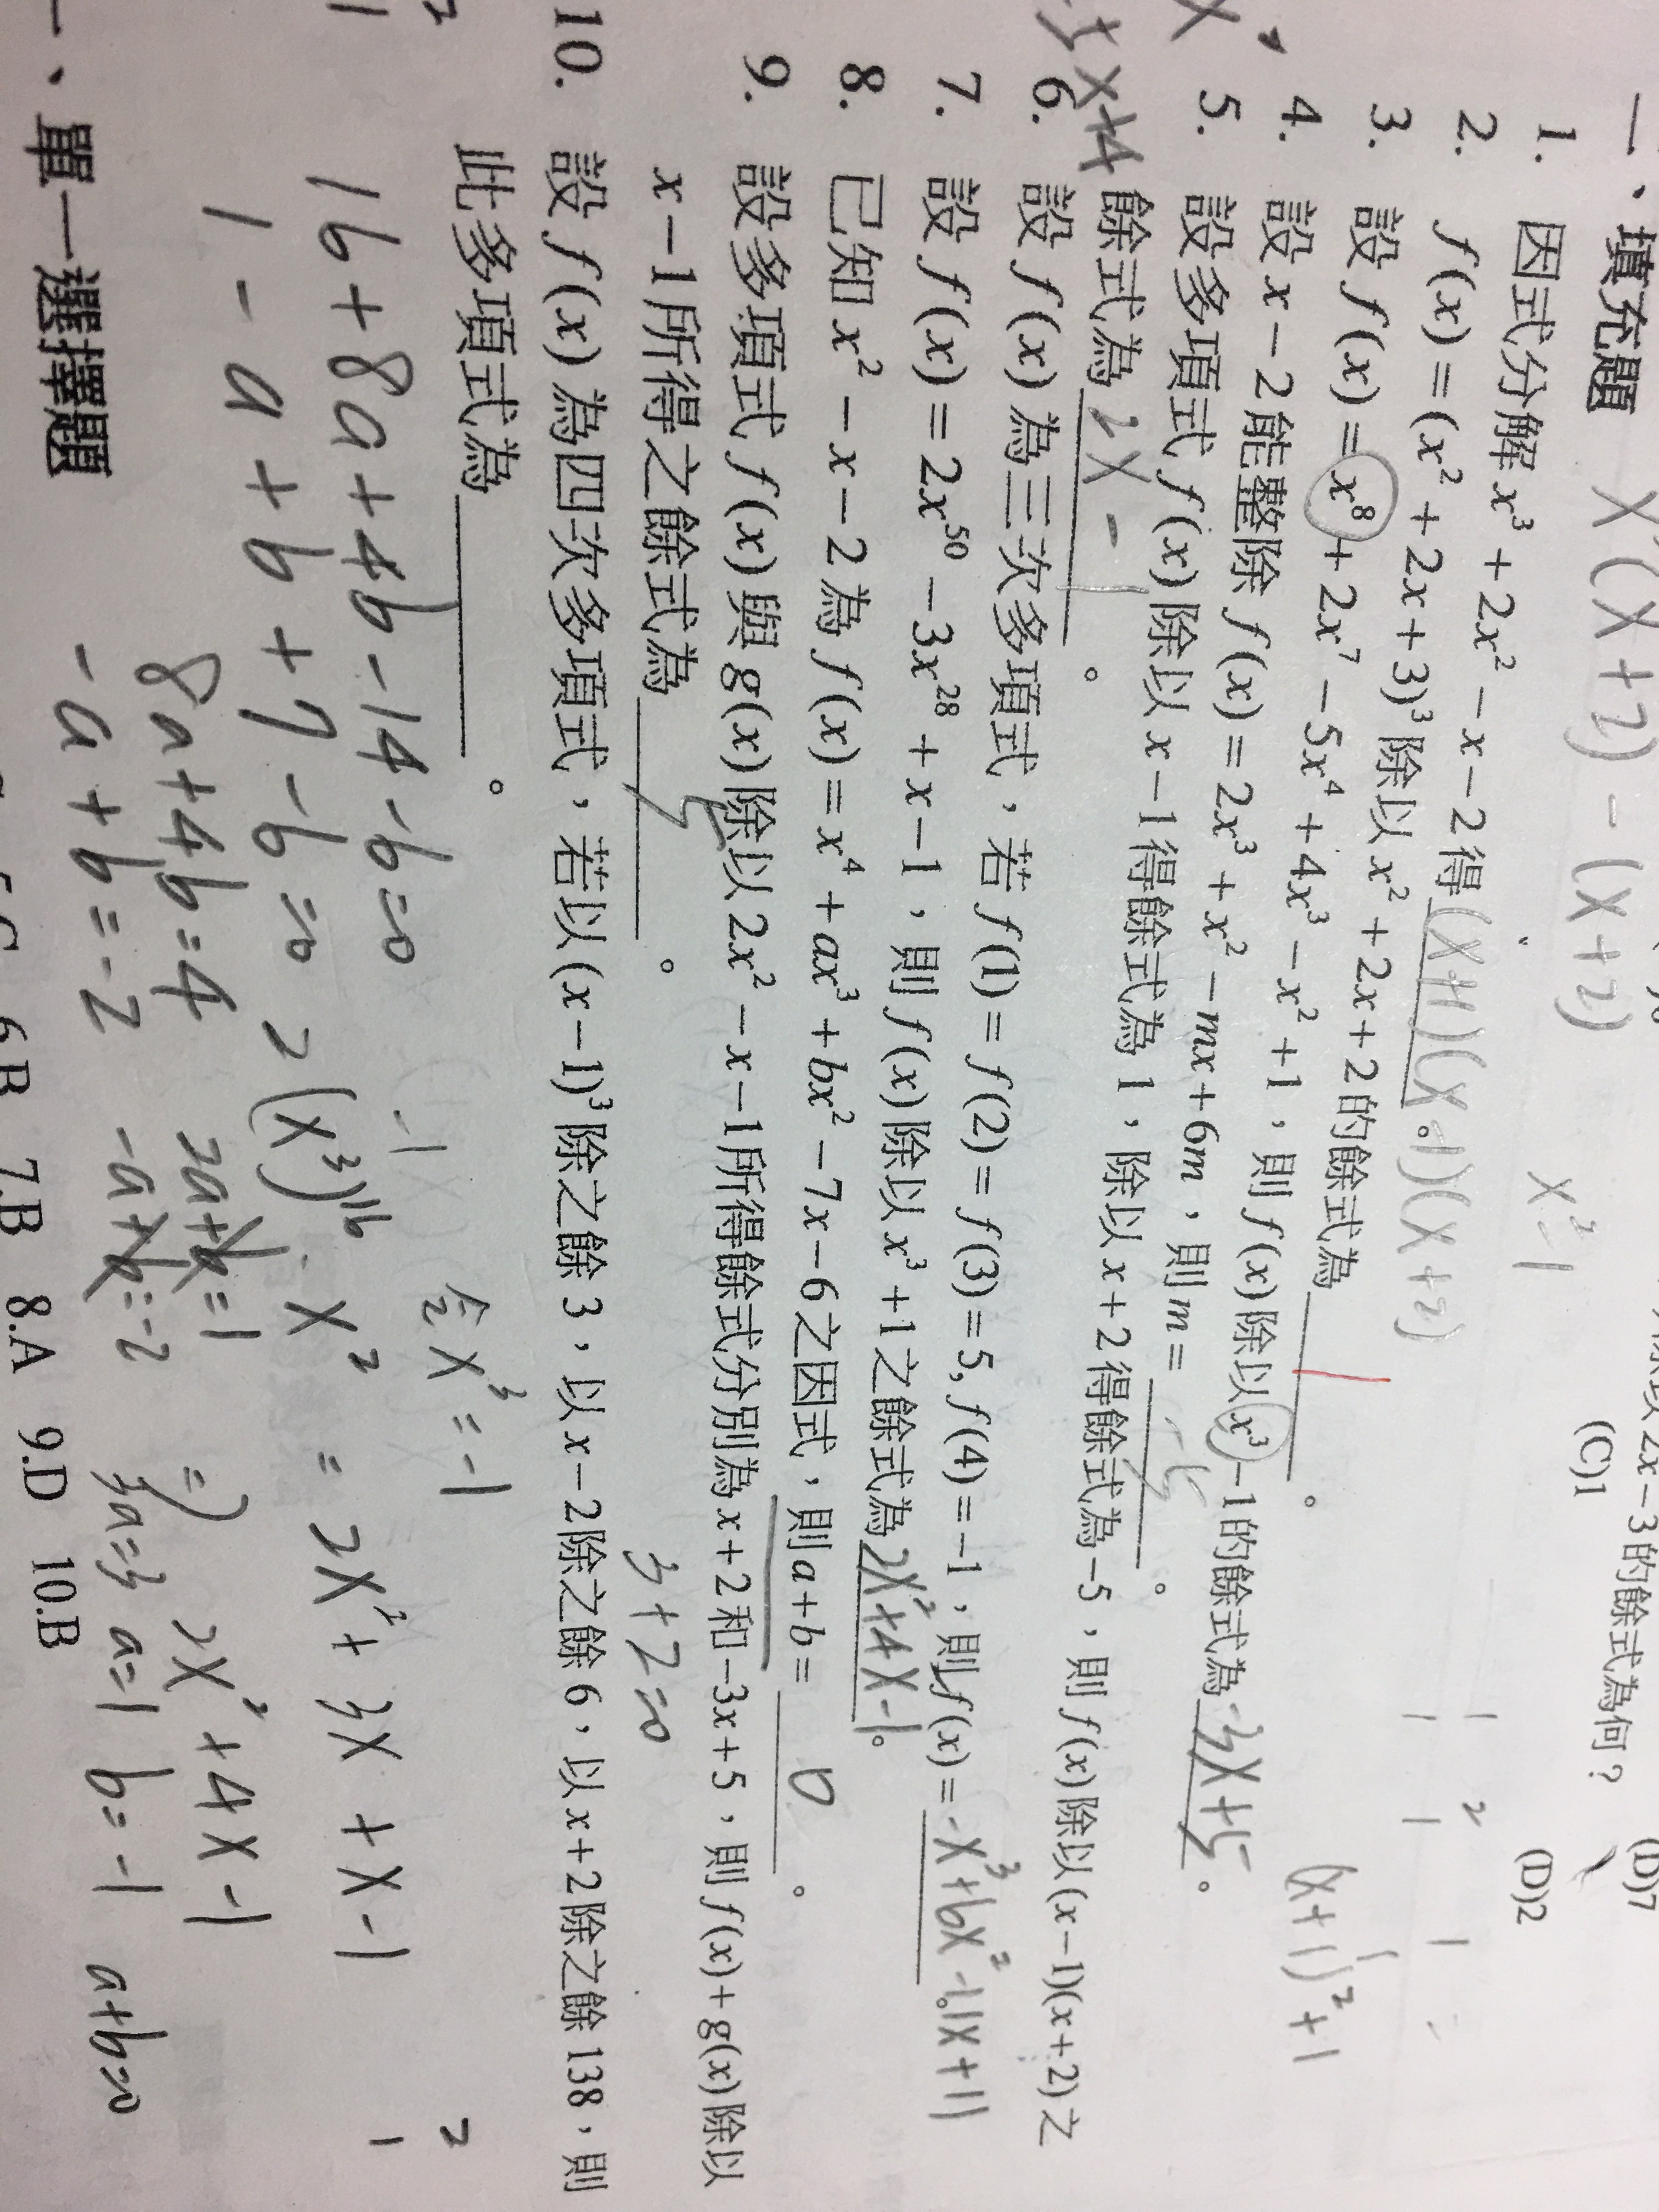 除以 2x－3 的餘式為何？ (D)7
(C)1 (D)2
x²(x+2)-(x+2)
x²-1
一、填充題
1. 因式分解 x³+2x²－x－2 得 (x+1)(x-1)(x+2)
2. f(x)=(x²+2x+3)³ 除以 x²+2x+2 的餘式為 1 。
(x+1)²+1
3. 設 f(x)=x⁸+2x⁷－5x⁴+4x³－x²+1，則 f(x) 除以 x³－1 的餘式為 -3x+5 。
4. 設 x－2 能整除 f(x)=2x³+x²－mx+6m，則 m= -5 。
5. 設多項式 f(x) 除以 x－1 得餘式為 1，除以 x+2 得餘式為－5，則 f(x) 除以 (x－1)(x+2) 之
餘式為 2x-1 。
6. 設 f(x) 為三次多項式，若 f(1)=f(2)=f(3)=5, f(4)=－1，則 f(x)= -x³+6x²-11x+11
7. 設 f(x)=2x⁵⁰－3x²⁸+x－1，則 f(x) 除以 x³+1 之餘式為 2x²+4x-1。
8. 已知 x²－x－2 為 f(x)=x⁴+ax³+bx²－7x－6 之因式，則 a+b= 0 。
9. 設多項式 f(x) 與 g(x) 除以 2x²－x－1 所得餘式分別為 x+2 和－3x+5，則 f(x)+g(x) 除以
x－1 所得之餘式為 5 。
3+2=0
10. 設 f(x) 為四次多項式，若以 (x－1)³ 除之餘 3，以 x－2 除之餘 6，以 x+2 除之餘 138，則
此多項式為 。
令x³=-1
16+8a+4b-14-6=0
1-a+b+7-6=0
2(x³)¹⁶·x² = 2x²+3x+x-1
2x²+4x-1
8a+4b=4
-a+b=-2
2a+b=1
-a+b=-2
⇒ 3a=3 a=1 b=-1 a+b=0
一、單一選擇題
6.B 7.B 8.A 9.D 10.B